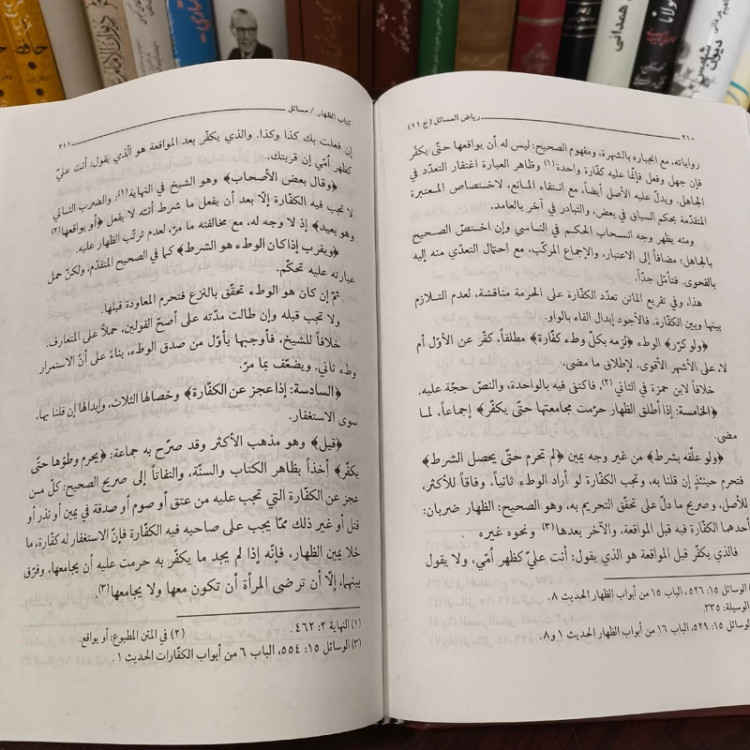 ديوان شمس
مولانا
همدانی
٢١٠ رياض المسائل (ج ١١)
رواياته، مع انجباره بالشهرة، ومفهوم الصحيح: ليس له أن يواقعها حتّى يكفّر
فإن جهل وفعل فإنّما عليه كفّارة واحدة(١) وظاهر العبارة اغتفار التعدّد في
الجاهل. ويدلّ عليه الأصل أيضاً، مع انتفاء المانع، لاختصاص المعتبرة
المتقدّمة بحكم السياق في بعض، والتبادر في آخر بالعامد.
ومنه يظهر وجه انسحاب الحكم في الناسي وإن اختصّ الصحيح
بالجاهل؛ مضافاً إلى الاعتبار، والإجماع المركّب، مع احتمال التعدّي منه إليه
بالفحوى. فتأمّل جدّاً.
هذا، وفي تفريع الماتن تعدّد الكفّارة على الحرمة مناقشة، لعدم التلازم
بينها وبين الكفّارة، فالأجود إبدال الفاء بالواو.
﴿ولو كرّر﴾ الوطء ﴿لزمه بكلّ وطء كفّارة﴾ مطلقاً، كفّر عن الأوّل أم
لا، على الأشهر الأقوى، لإطلاق ما مضى.
خلافاً لابن حمزة في الثاني(٢)، فاكتفى فيه بالواحدة، والنصّ حجّة عليه.
﴿الخامسة: إذا أطلق الظهار حرمت مجامعتها حتّى يكفّر﴾ إجماعاً، لما
مضى.
﴿ولو علّقه بشرط﴾ من غير وجه يمين ﴿لم تحرم حتّى يحصل الشرط﴾
فتحرم حينئذٍ إن قلنا به، وتجب الكفّارة لو أراد الوطء ثانياً، وفاقاً للأكثر،
للأصل، وصريح ما دلّ على تحقّق التحريم به، وهو الصحيح: الظهار ضربان:
أحدهما الكفّارة فيه قبل المواقعة، والآخر بعدها(٣) ونحوه غيره.
فالذي يكفّر قبل المواقعة هو الذي يقول: أنت عليّ كظهر أُمّي، ولا يقول
الوسائل ١٥: ٥٢٦، الباب ١٥ من أبواب الظهار الحديث ٨.
الوسيلة: ٣٣٥.
الوسائل ١٥: ٥٢٩، الباب ١٦ من أبواب الظهار الحديث ١ و٨.
كتاب الظهار / مسائل ٢١١
إن فعلت بك كذا وكذا، والذي يكفّر بعد المواقعة هو الّذي يقول: أنت عليّ
كظهر أُمّي إن قربتك.
﴿وقال بعض الأصحاب﴾ وهو الشيخ في النهاية(١): والضرب الثاني
لا تجب فيه الكفّارة إلّا بعد أن يفعل ما شرط أنّه لا يفعل ﴿أو يواقعها(٢)
وهو بعيد﴾ إذ لا وجه له، مع مخالفته ما مرّ، لعدم ترتّب الظهار عليه.
﴿ويقرب إذا كان الوطء هو الشرط﴾ كما في الصحيح المتقدّم، ولكنّ حمل
عبارته عليه تحكّم.
ثمّ إن كان هو الوطء تحقّق بالنزع فتحرم المعاودة قبلها.
ولا تجب قبله وإن طالت مدّته على أصحّ القولين، حملاً على المتعارف.
خلافاً للشيخ، فأوجبها بأوّل من صدق الوطء، بناءً على أنّ الاستمرار
وطء ثاني، ويضعّف بما مرّ.
﴿السادسة: إذا عجز عن الكفّارة﴾ وخصالها الثلاث، وإبدالها إن قلنا بها،
سوى الاستغفار.
﴿قيل﴾ وهو مذهب الأكثر وقد صرّح به جماعة: ﴿يحرم وطؤها حتّى
يكفّر﴾ أخذاً بظاهر الكتاب والسنّة، والتفاتاً إلى صريح الصحيح: كلّ من
عجز عن الكفّارة التي تجب عليه من عتق أو صوم أو صدقة في يمين أو نذر أو
قتل أو غير ذلك ممّا يجب على صاحبه فيه الكفّارة فإنّ الاستغفار له كفّارة، ما
خلا يمين الظهار، فإنّه إذا لم يجد ما يكفّر به حرمت عليه أن يجامعها، وفرّق
بينهما، إلّا أن ترضى المرأة أن تكون معها ولا يجامعها(٣).
(١) النهاية ٢: ٤٦٢. (٢) في المتن المطبوع: أو يواقع.
(٣) الوسائل ١٥: ٥٥٤، الباب ٦ من أبواب الكفّارات الحديث ١.